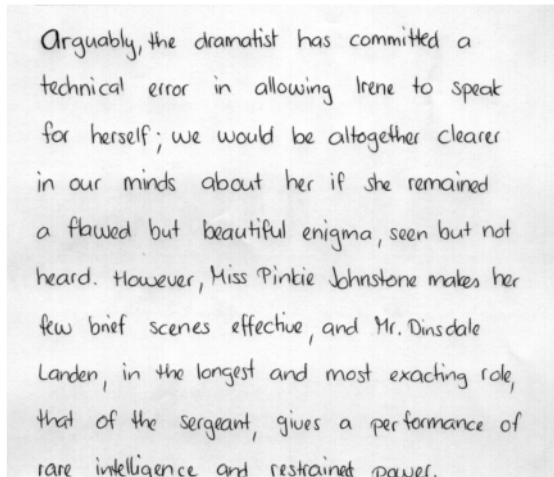 Arguably, the dramatist has committed a
technical error in allowing Irene to speak
for herself; we would be altogether clearer
in our minds about her if she remained
a flawed but beautiful enigma, seen but not
heard. However, Miss Pinkie Johnstone makes her
few brief scenes effective, and Mr. Dinsdale
Landen, in the longest and most exacting role,
that of the sergeant, gives a performance of
rare intelligence and restrained power.